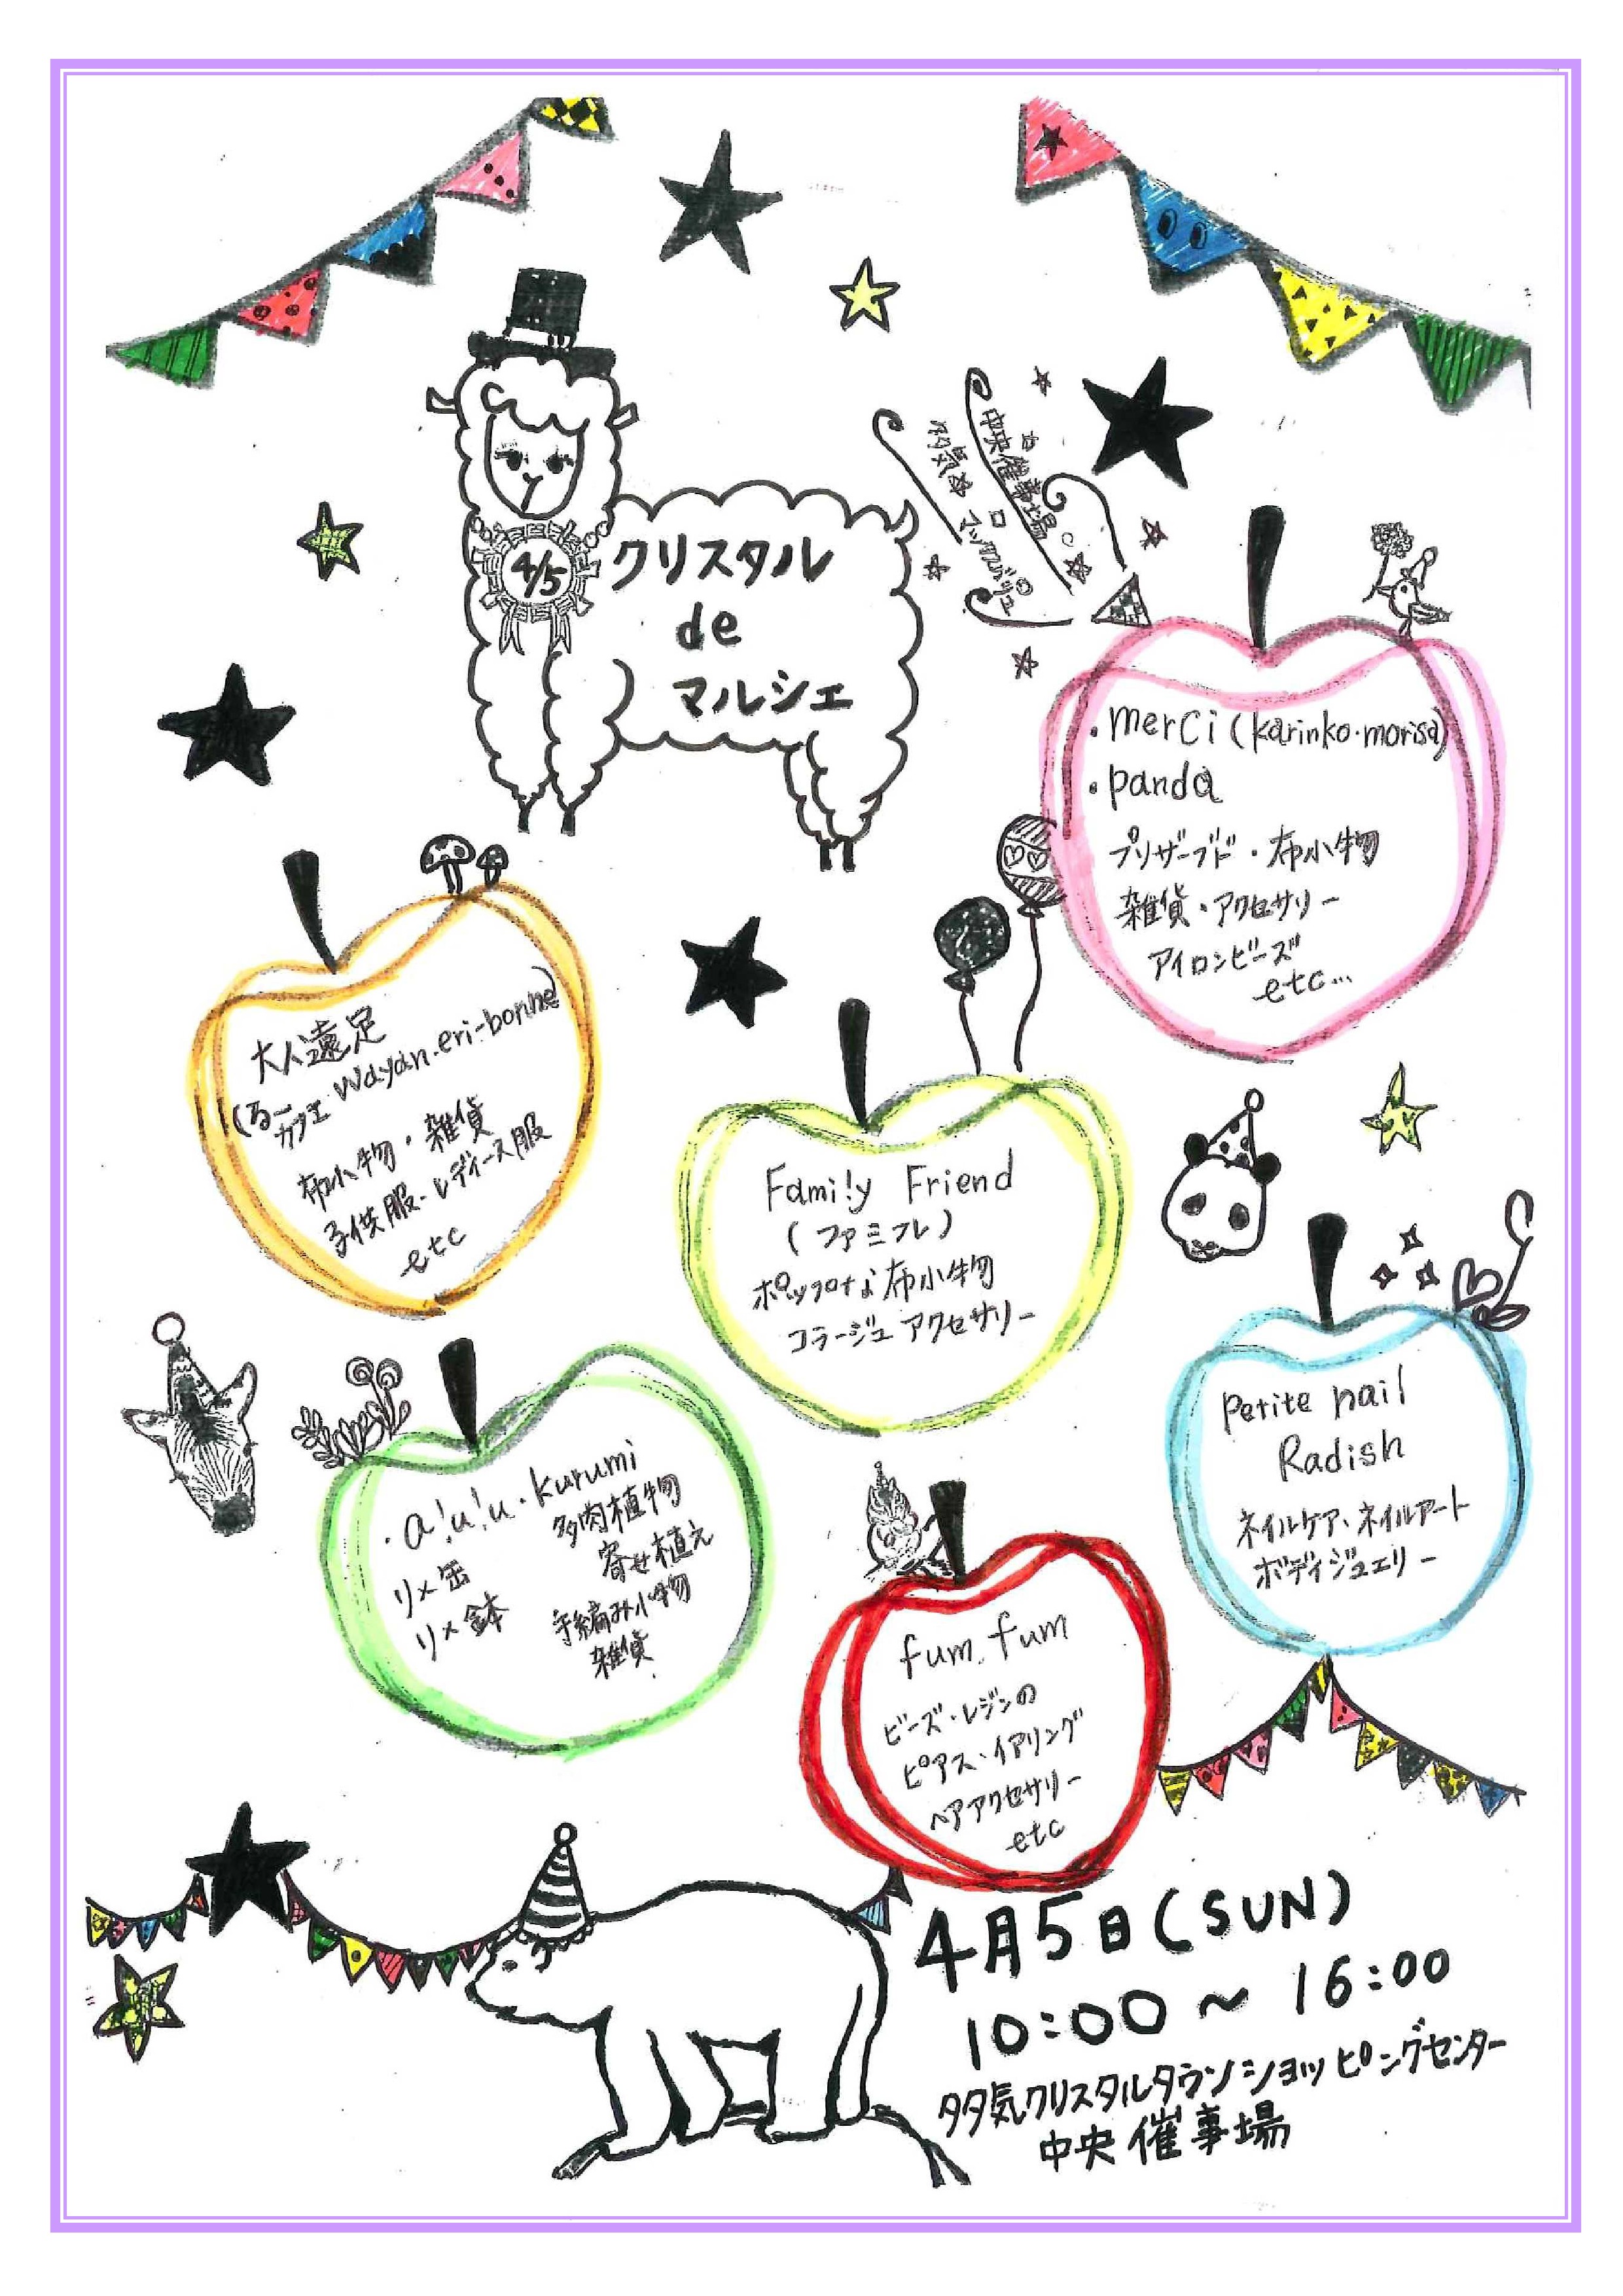 4/5
クリスタル
de
マルシェ
中央催事場
多気
マックスバリュ
・merci (karinko・morisa)
・panda
プリザーブド・布小物
雑貨・アクセサリー
アイロンビーズ
etc...
大人遠足
(るーカフェ wayan・eri-bonne)
布小物・雑貨
子供服・レディース服
etc
Fami!y Friend
(ファミフレ)
ポップな布小物
コラージュ アクセサリー
petite nail
Radish
ネイルケア、ネイルアート
ボディジュエリー
・a!u!u・kurumi
リメ缶
リメ鉢
多肉植物
寄せ植え
手編み小物
雑貨
fum fum
ビーズ・レジンの
ピアス・イアリング
ヘアアクセサリー
etc
4月5日(SUN)
10:00～16:00
多気クリスタルタウンショッピングセンター
中央催事場